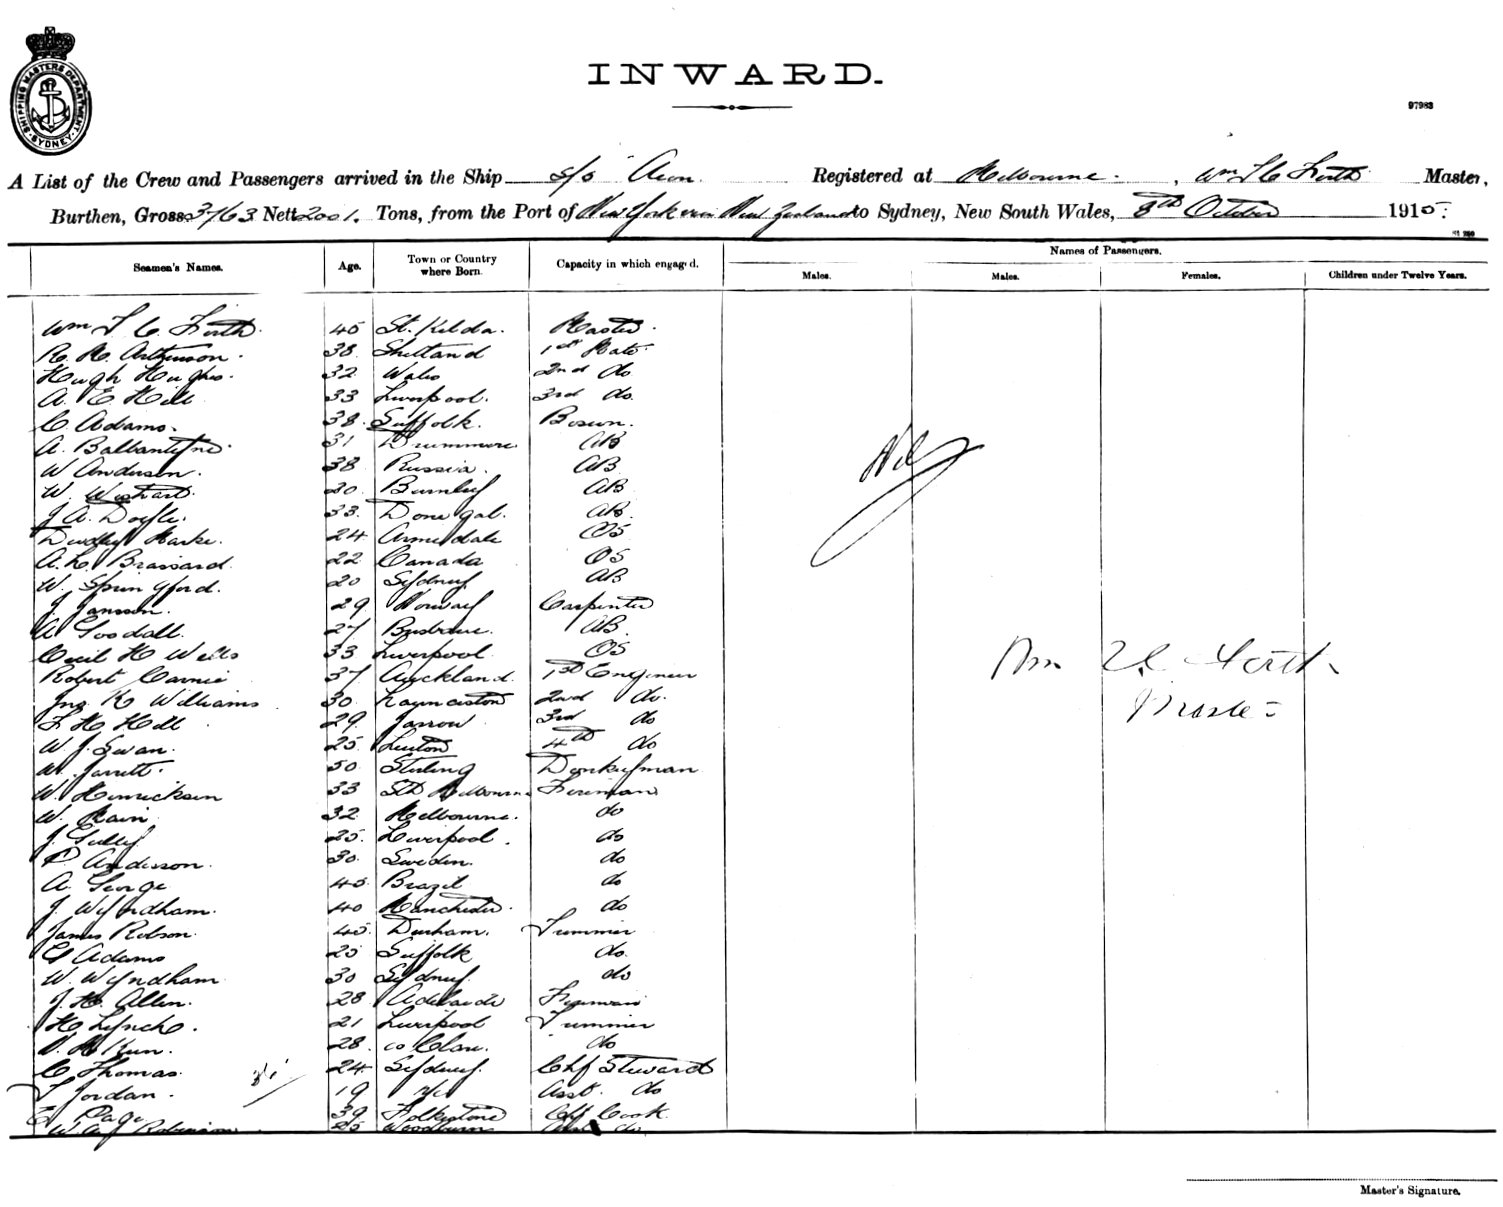 SHIPPING MASTERS DEPARTMENT. SYDNEY.
INWARD.
97983
A List of the Crew and Passengers arrived in the Ship s/s Aeon. Registered at Melbourne. , Wm L C Forth Master,
Burthen, Gross 3763 Nett 2001. Tons, from the Port of New York via New Zealand to Sydney, New South Wales, 8th October 1910.
Names of Passengers.
Seamen's Names. Age. Town or Country where Born. Capacity in which engaged. Males. Males. Females. Children under Twelve Years.
Wm L C. Forth. 45 St. Kilda. Master.
R. M. 38 Shetland 1st Mate.
Hugh Hughes. 32 Wales 2nd do
A. E Hill 33 Liverpool. 3rd do.
C. Adams. 38. Suffolk. Bosun.
A. Ballantyne. 31 Drummore AB
W Anderson. 38 Russia. AB
W. Wishart. 30 Burnley AB
J A. Doyle. 33. Donegal. AB.
Dudley 24 Armidale OS
A. L. Brassard. 22 Canada OS
W. Springford. 20 Sydney AB
J. Janson. 29 Norway Carpenter
A Goodall. 27 Brisbane. AB.
Cecil H Wells 33 Liverpool OS
Robert Carnie 37 Auckland. 1st Engineer
Jno. K Williams 30 Launceston 2nd do.
F H Hill 29 Jarrow 3rd do
W. J. Swan. 25 Luton 4th do
Jarrett. 50 Stirling Donkeyman
W. Henricksen 33 Sth Melbourne Fireman
W. Main 32 Melbourne. do
J. Tulley 25. Liverpool. do
P. Anderson. 30. Sweden. do
A. George 45 Brazil do
J. Wyndham. 40 Manchester. do
James Robson. 45. Durham. Trimmer
G Adams 25 Suffolk do.
W. Wyndham 30 Sydney. do
J. H. Allen. 28 Adelaide Fireman
H Lynch. 21 Liverpool Trimmer
28. co Clare. do
C Thomas. 24 Sydney. Chf Steward
Jordan. 19 Asst. do
E Page 39 Folkestone Chf Cook
W. Robinson. 25 Woodburn Asst do
Nil
Wm L C Forth
Master
Master's Signature.